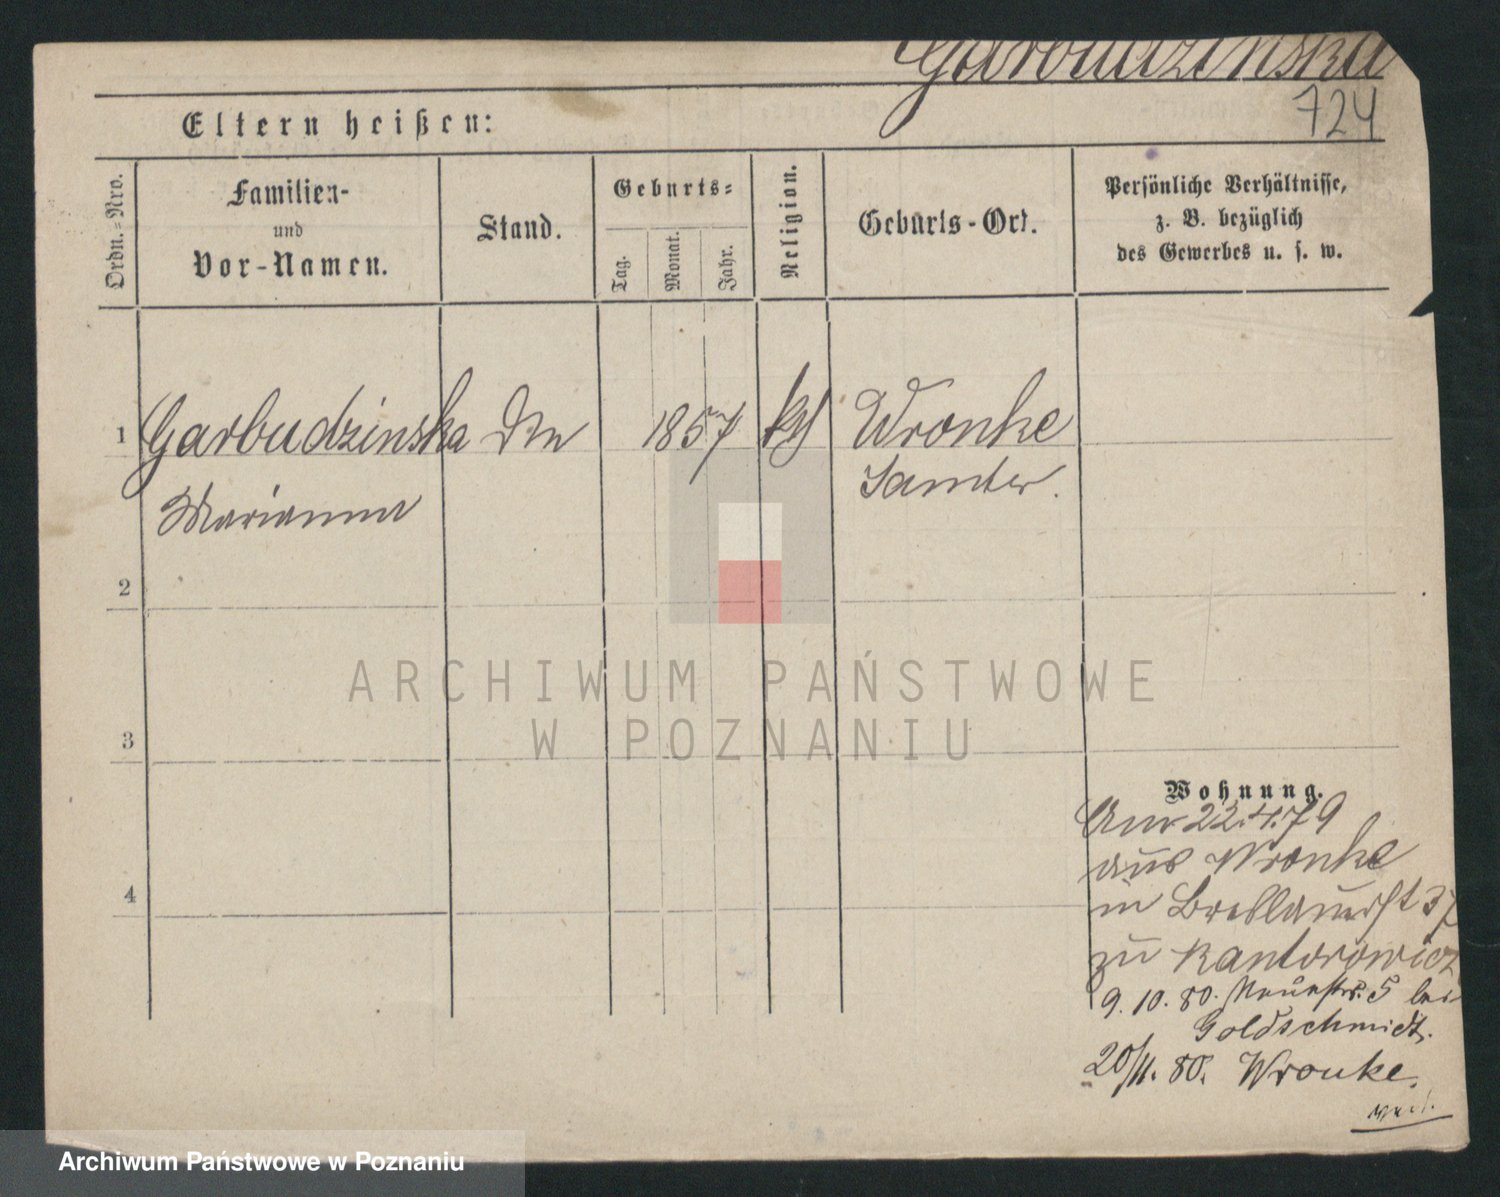 Garbudzinska
724
Eltern heißen:
Ordn.-Nro.
Familien-
und
Vor-Namen.
Stand.
Geburts-
Tag.
Monat.
Jahr.
Religion.
Geburts-Ort.
Persönliche Verhältnisse,
z. B. bezüglich
des Gewerbes u. s. w.
1 Garbudzinska 1857 kth Wronke
Marianna Samter.
2
3
4
ARCHIWUM PAŃSTWOWE
W POZNANIU
Wohnung.
22.4.79
aus Wronke
in Breslauerst 37
zu Kantorowicz
9. 10. 80. Neuestr. 5 bei
Goldschmidt.
20/11. 80. Wronke.
Archiwum Państwowe w Poznaniu